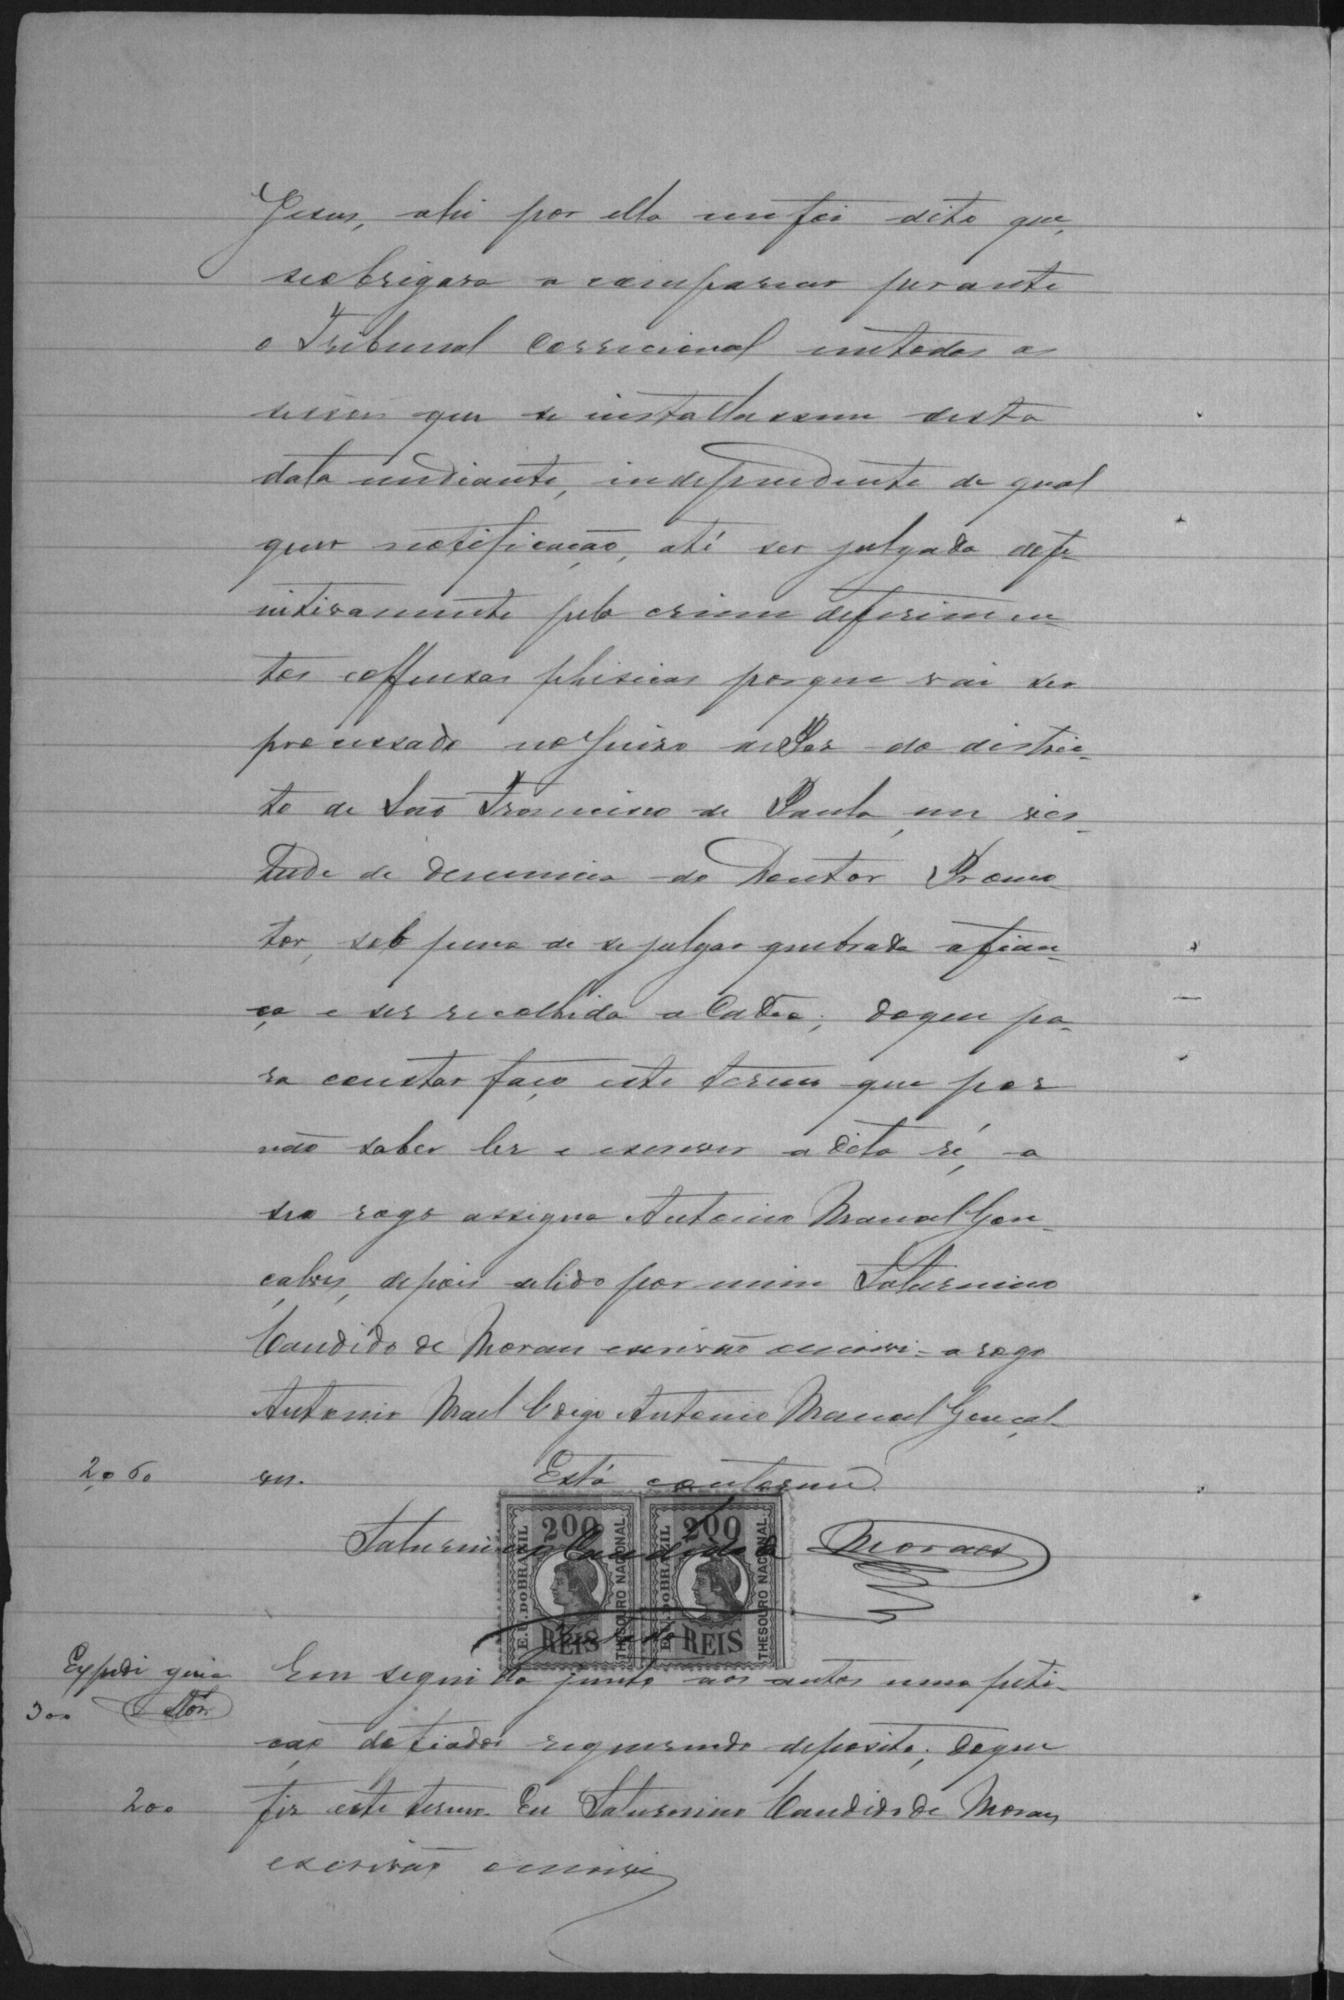 Jesus, ahi por ella me foi dito que,
se obrigava a comparecer perante
o Tribunal Correcional em todas as
sessões que se installassem desta
data em diante, independente de qual
quer notificação, até ser julgada defi-
nitivamente pelo crime de ferimen-
tos e offensas phisicas porque vai ser
processado no Juizo de Paz do distric-
to de São Francisco de Paula, em vir-
tude de denuncia do Doutor Promo-
tor, sob pena de se julgar quebrada a fian-
ça e ser recolhida a Cadea; do que pa-
ra constar faço este termo que por
não saber ler e escrever a dita ré, a
seu rogo assigna Antonio Manoel Gon-
çalves, depois de lido por mim Saturnino
Candido de Moraes escrivão escrevi - a rogo
Antonio Mael Antonio Manoel Gonçal-
ves. Está conforme.
200
REIS
E.U. DO BRAZIL
THESOURO NACIONAL
200
REIS
E.U. DO BRAZIL
THESOURO NACIONAL
Saturnino Candido de Moraes
Juntada
Expedi guia
300
Em seguida junto aos autos uma peti-
ção do fiador requerendo deposito; do que
200
fiz este termo. Eu Saturnino Candido de Moraes
escrivão escrevi